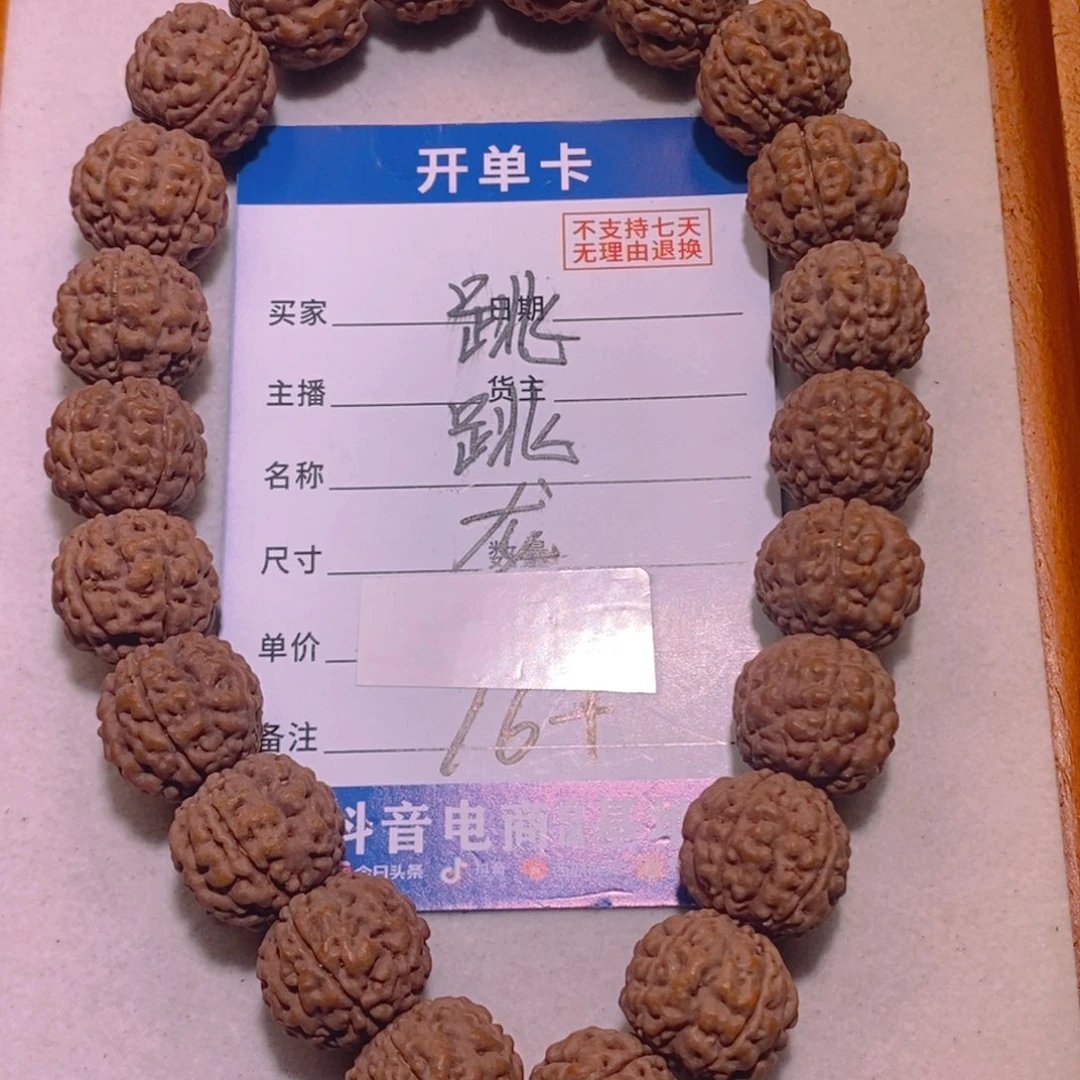 开单卡
不支持七天
无理由退换
买家 日期
跳
主播 货主
跳
名称
龙
尺寸 数量
单价
备注
16+
抖音电商
今日头条 抖音